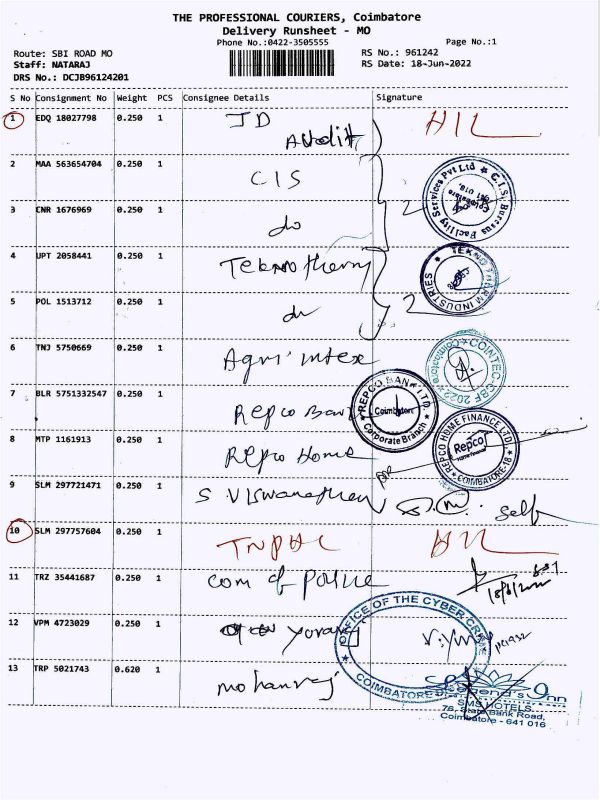 THE PROFESSIONAL COURIERS, Coimbatore
Delivery Runsheet - MO
Phone No.:0422-3505555
Page No.:1
Route: SBI ROAD MO
RS No.: 961242
Staff: NATARAJ
RS Date: 18-Jun-2022
DRS No.: DCJB96124201
S No Consignment No Weight PCS Consignee Details Signature
1 EDQ 18027798 0.250 1 JD Audit
2 MAA 563654704 0.250 1 CIS
C.I.S. Bureau Facility Services Pvt Ltd
3 CNR 1676969 0.250 1 do 2
4 UPT 2058441 0.250 1 Teknotherm
TEKNOTHERM INDUSTRIES
5 POL 1513712 0.250 1 do 2
6 TNJ 5750669 0.250 1 Agri intex
COINTEC-CBF 2022 Coimbatore
7 BLR 5751332547 0.250 1 Repco Bank
REPCO BANK LTD. Coimbatore Corporate Branch
8 MTP 1161913 0.250 1 Repco Home
REPCO HOME FINANCE LTD. Repco Home Finance COIMBATORE-18
9 SLM 297721471 0.250 1 S Viswanathan Self
10 SLM 297757604 0.250 1
11 TRZ 35441687 0.250 1 Com of Police
12 VPM 4723029 0.250 1
OFFICE OF THE CYBER CRIME COIMBATORE
13 TRP 5021743 0.620 1 mohanraj
Legend's Inn
SMS HOTELS
76, State Bank Road,
Coimbatore - 641 016